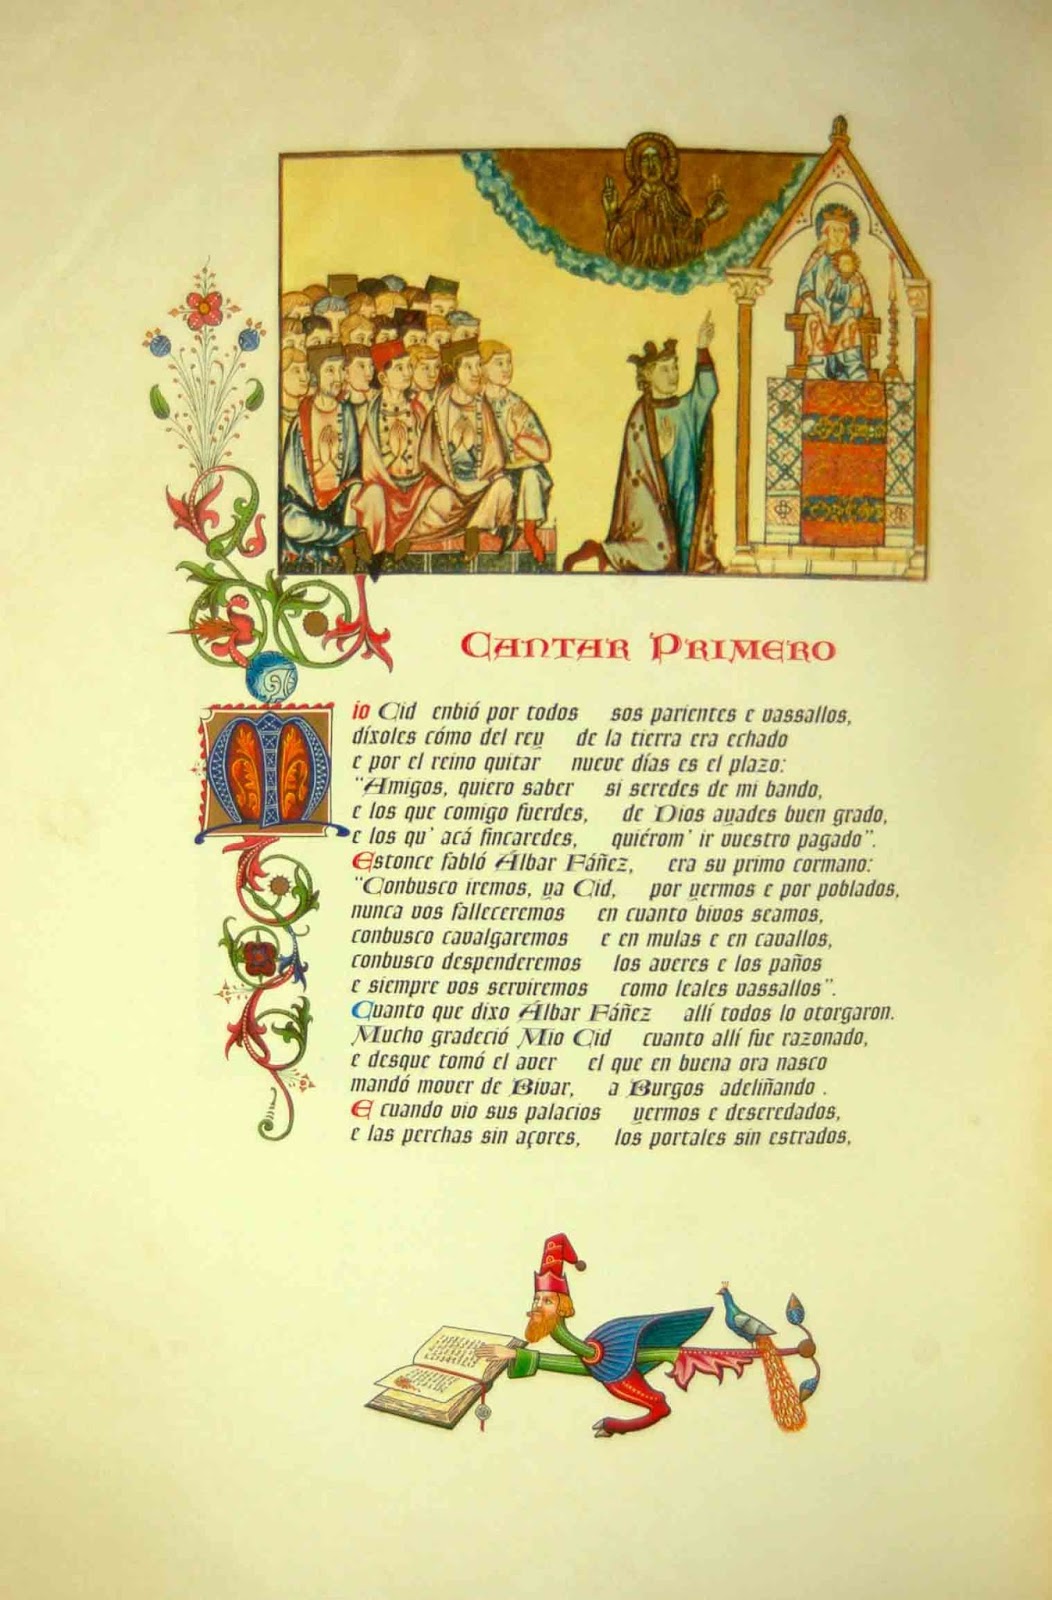 Cantar Primero
Mio Cid enbió por todos sos parientes e vassallos,
díxoles cómo del rey de la tierra era echado
e por el reino quitar nueve días es el plazo:
"Amigos, quiero saber si seredes de mi bando,
e los que comigo fuerdes, de Dios ayades buen grado,
e los qu' acá fincaredes, quiérom' ir vuestro pagado".
Estonce fabló Álbar Fáñez, era su primo cormano:
"Conbusco iremos, ya Cid, por yermos e por poblados,
nunca vos falleceremos en cuanto bivos seamos,
conbusco cavalgaremos e en mulas e en cavallos,
conbusco despenderemos los averes e los paños
e siempre vos serviremos como leales vassallos".
Cuanto que dixo Álbar Fáñez allí todos lo otorgaron.
Mucho gradeció Mio Cid cuanto allí fue razonado,
e desque tomó el aver el que en buena ora nasco
mandó mover de Bivar, a Burgos adeliñando .
E cuando vio sus palacios yermos e deseredados,
e las perchas sin açores, los portales sin estrados,